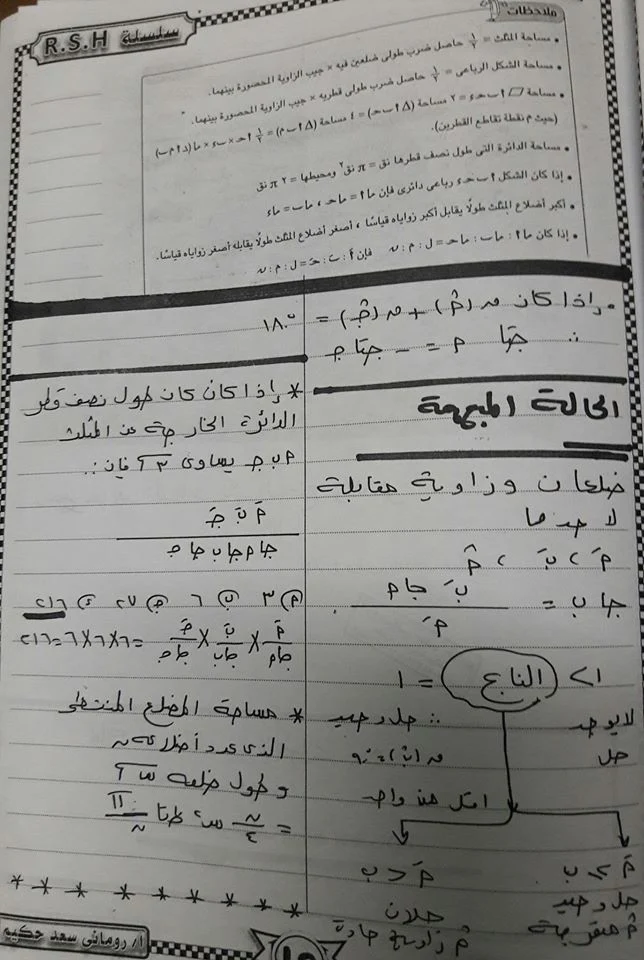 سلسلة R.S.H
ملاحظات
• مساحة المثلث = ١/٢ حاصل ضرب طولى ضلعين فيه × جيب الزاوية المحصورة بينهما.
• مساحة الشكل الرباعى = ١/٢ حاصل ضرب طولى قطريه × جيب الزاوية المحصورة بينهما.
• مساحة ▱ ا ب حـ ء = ٢ مساحة (Δ ا ب حـ) = ٤ مساحة (Δ ا ب م) = ١/٢ ا حـ × ب ء × ما (د ا م ب)
(حيث م نقطة تقاطع القطرين).
• مساحة الدائرة التى طول نصف قطرها نق = π نق٢ ومحيطها = ٢ π نق
• إذا كان الشكل ا ب حـ ء رباعى دائرى فإن ما ا = ما حـ ، ما ب = ما ء
• أكبر أضلاع المثلث طولًا يقابل أكبر زواياه قياسًا ، أصغر أضلاع المثلث طولًا يقابله أصغر زواياه قياسًا.
• إذا كان ما ا : ما ب : ما حـ = ل : م : ن فإن اَ : بَ : حـَ = ل : م : ن
• إذا كان
= ١٨٠°
∴
الحالة المبهمة
ضلعان وزاوية مقابلة
لاحدهما
جا ب =
١ < الناتج = ١
لا يوجد
حل
∴ حل وحيد
اقل من واحد
حل وحيد
م منفرجة
حلان
م زاوية حادة
* إذا كان كان طول نصف قطر
الدائرة الخارجة عن المثلث
م ب جـ يساوى ٣ فإن :.
مَ بَ جـَ
جا م جا ب جا جـ
٣ ٦ ٢٧ ٢١٦
مَ/جا م × بَ/جا ب × جـَ/جا جـ = ٦×٦×٦ = ٢١٦
* مساحة المضلع المنتظم
الذى عدد أضلاعه ن
و طول ضلعه س
= ن/٤ س٢ ظتا π/ن
* * * * * * * * *
أ/ رومانى سعد حكيم